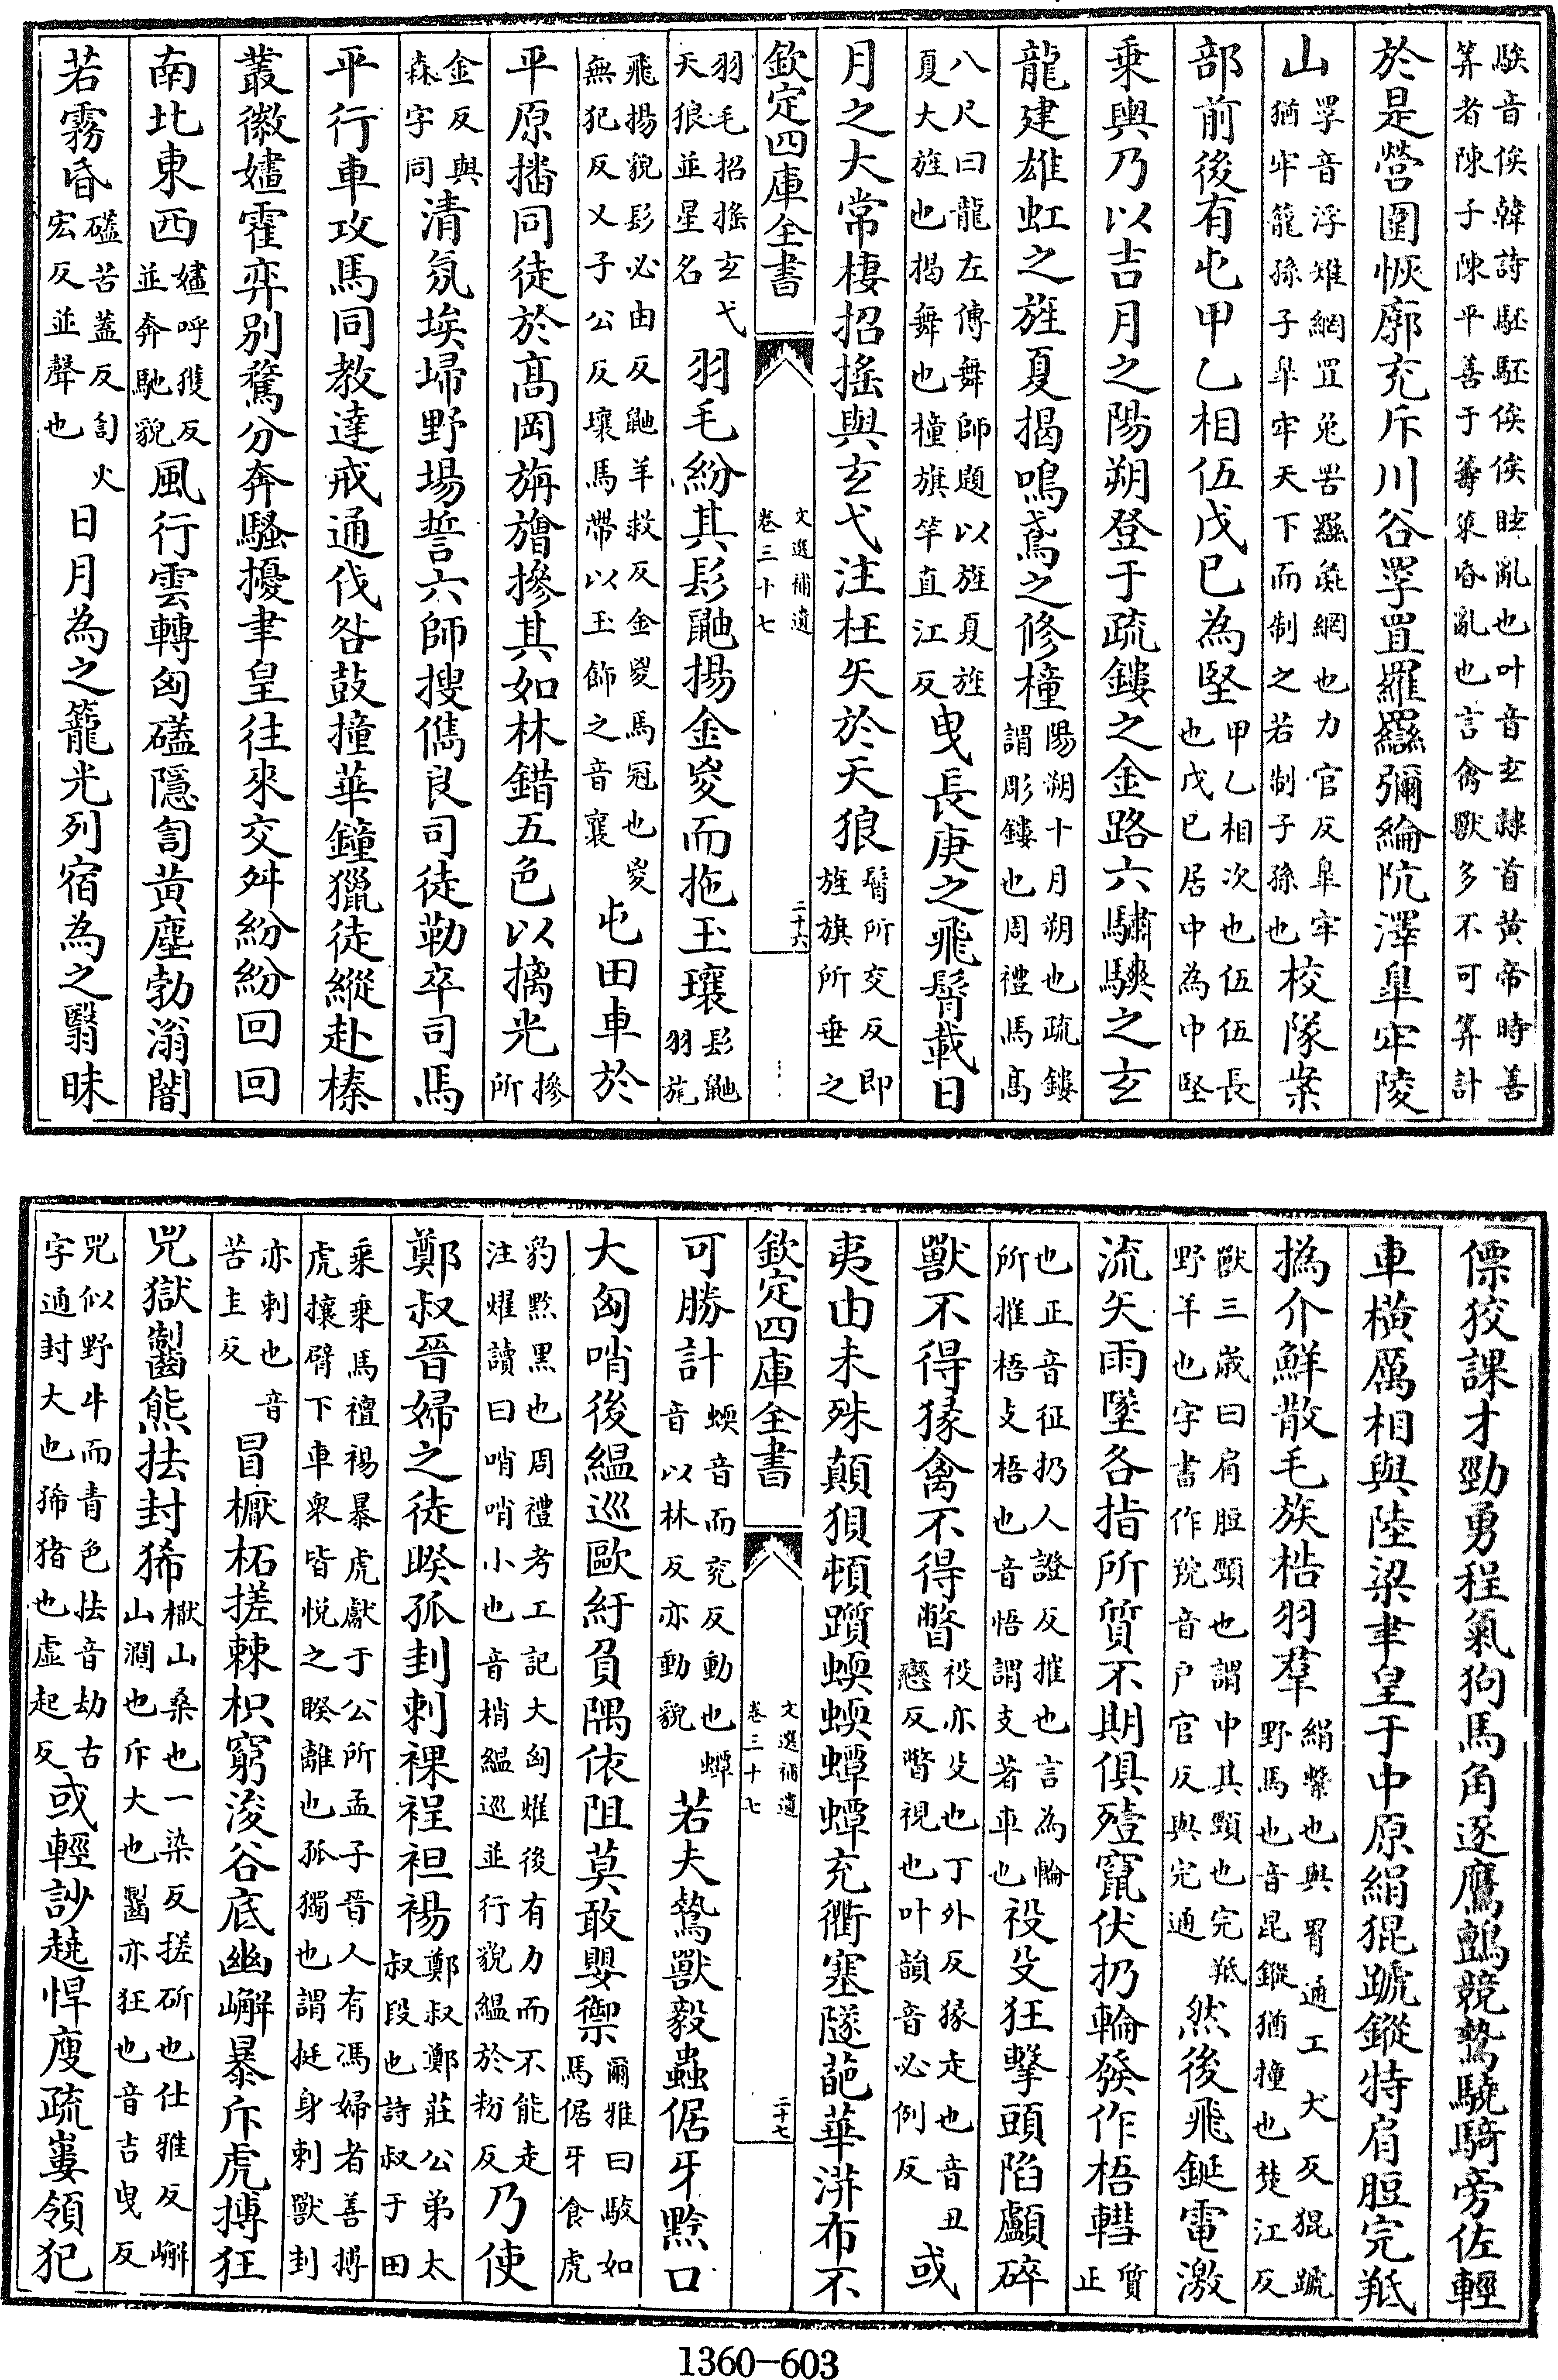 騃音俟韓詩駓駓俟俟眩亂也叶音玄隷首黄帝時善
筭者陳子陳平善于籌筞昏亂也言禽獸多不可筭計
於是營圍恢廓充斥川谷罦罝羅䍦彌綸阬澤皐牢陵
山罦音浮雉網罝兔罟䍦彘網也力官反皐牢猶牢籠孫子皐牢天下而制之若制子孫也校隊案
部前後有屯甲乙相伍戊已為堅甲乙相次也伍伍長也戊已居中為中堅
乗輿乃以吉月之陽朔登于疏鏤之金路六驌驦之玄
龍建雄虹之旌夏揭鳴鳶之修橦陽朔十月朔也疏鏤謂彫鏤也周禮馬髙
八尺曰龍左傳舞師題以旌夏旌夏大旌也揭舞也橦旗竿直江反曳長庚之飛髾載日
月之大常棲招搖與玄弋注枉矢於天狼髾所交反即旌旗所垂之
欽定四庫全書 文選補遺 卷三十七 二十六
羽毛招搖玄弋天狼並星名羽毛紛其髟鼬揚金㚇而拖玉瓖髟鼬羽旄
飛揚貌髟必由反鼬羊救反金㚇馬冠也㚇無犯反又子公反瓖馬帶以玉飾之音襄屯田車於
平原播同徒於髙岡旃旝摻其如林錯五色以摛光摻所
金反與森字同清氛埃埽野場誓六師搜儁良司徒勒卒司馬
平行車攻馬同教達戒通伐咎鼓撞華鐘獵徒縱赴榛
叢徽嫿霍弈别騖分奔騷擾聿皇往來交舛紛紛回回
南北東西嫿呼獲反並奔馳貌風行雲轉匈礚隱訇黄塵勃滃闇
若霧昏礚苦蓋反訇火宏反並聲也日月為之籠光列宿為之翳昧
僄狡課才勁勇程氣狗馬角逐鷹鸇競騖驍騎旁佐輕
車橫厲相與陸梁聿皇于中原絹猑蹏鏦特肩脰完羝
撝介鮮散毛族梏羽羣絹繫也與罥通工犬反猑蹏野馬也音昆鏦猶撞也楚江反
獸三歳曰肩脰頸也謂中其頸也完羝野羊也字書作羦音户官反與完通然後飛鋋電激
流矢雨墜各指所質不期俱殪竄伏扔輪發作梧轊質正
也正音征扔人證反摧也言為輪所摧梧支梧也音悟謂支著車也祋殳狂擊頭陷顱碎
獸不得猭禽不得瞥祋亦殳也丁外反猭走也音丑戀反瞥視也叶韻音必例反或
夷由未殊顛狽頓躓蝡蝡蟫蟫充衢塞隧葩華蓱布不
欽定四庫全書 文選補遺 卷三十七 二十七
可勝計蝡音而兖反動也蟫音以林反亦動貌若夫鷙獸毅蟲倨牙黔口
大匈哨後緼巡歐紆負隅依阻莫敢嬰禦爾雅曰駮如馬倨牙食虎
豹黔黑也周禮考工記大匈燿後有力而不能走注燿讀曰哨哨小也音梢緼巡並行貌緼於粉反乃使
鄭叔晉婦之徒睽孤刲刺裸裎袒裼鄭叔鄭莊公弟太叔段也詩叔于田
乗乗馬襢裼暴虎獻于公所孟子晉人有馮婦者善搏虎攘臂下車衆皆悦之睽離也孤獨也謂挺身刺獸刲
亦刺也音苦圭反冒樕柘搓棘枳窮浚谷底幽嶰暴斥虎搏狂
兕獄齧熊抾封狶樕山桑也一染反搓斫也仕雅反嶰山澗也斥大也齧亦狂也音吉曳反
兕似野牛而青色抾音劫古字通封大也狶猪也虚起反或輕訬趬悍廋疏嶁領犯
1360-603